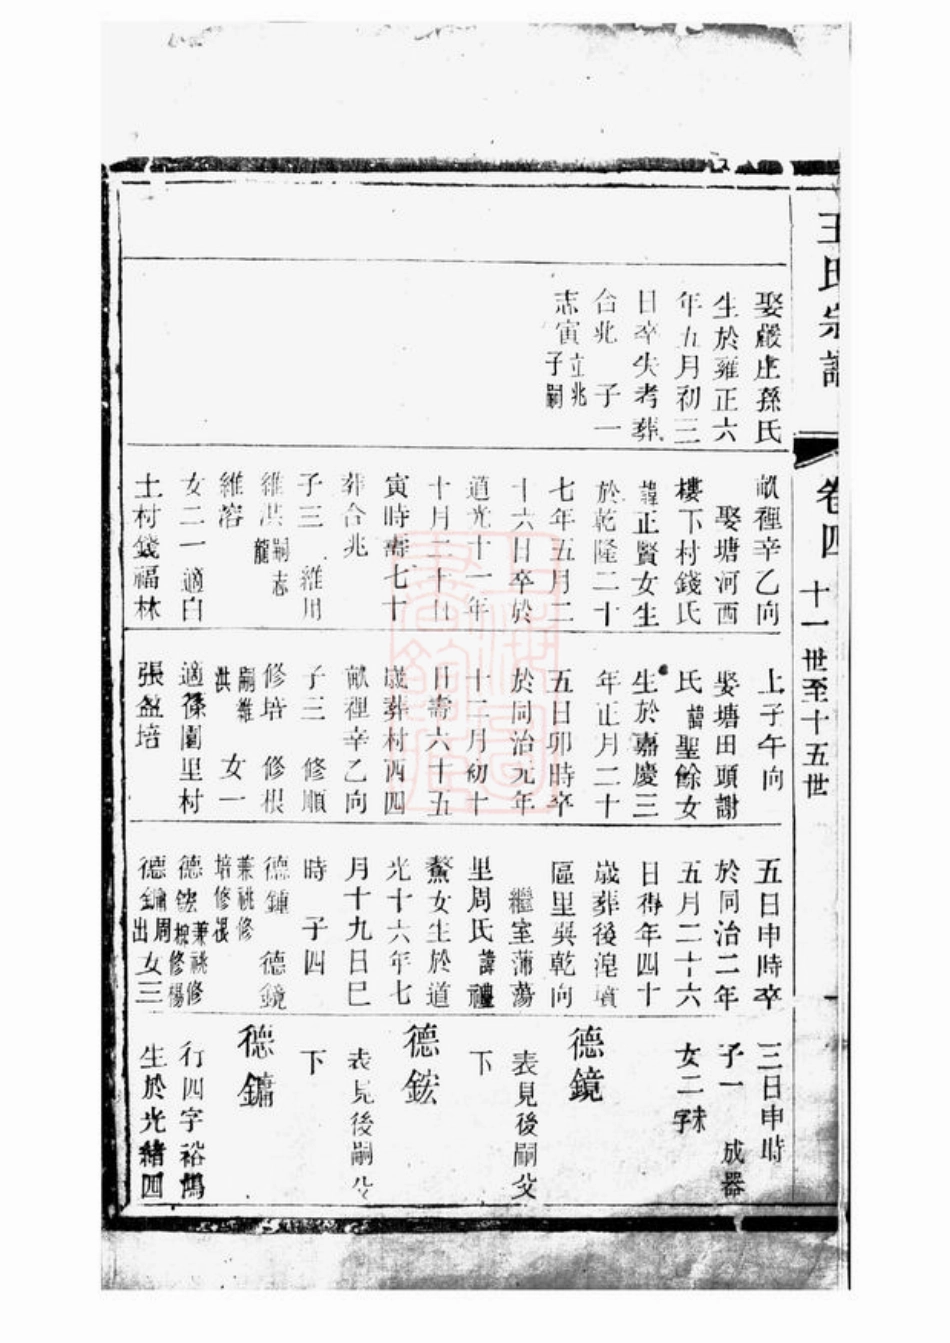 王氏宗譜
卷四 十一世至十五世
娶嚴庄孫氏
生於雍正六
年五月初三
日卒失考葬
合兆 子一
志寅 立兆子嗣
畝裡辛乙向
娶塘河西
樓下村錢氏
諱正賢女生
於乾隆二十
七年五月二
十六日卒於
道光十一年
十月二十五
寅時壽七十
葬合兆
子三 維用
維洪 嗣志龍
維溶
女二一適白
土村錢福林
上子午向
娶塘田頭謝
氏諱聖餘女
生於嘉慶三
年正月二十
五日卯時卒
於同治元年
十二月初十
日壽六十五
歲葬村西四
畝裡辛乙向
子三 修順
修培 修根
嗣維洪 女一
適篠園里村
張盈培
五日申時卒
於同治二年
五月二十六
日得年四十
歲葬後湟墳
區里巽乾向
繼室蒲蕩
里周氏諱禮
鰲女生於道
光十六年七
月十九日巳
時 子四
德鍾 德鏡
兼祧修培修根
德鋐 兼祧修根修楊
德鏞 周出 女三
三日申時
子一 成器
女二 未字
德鏡
表見後嗣父
下
德鋐
表見後嗣父
下
德鏞
行四字裕鴻
生於光緒四